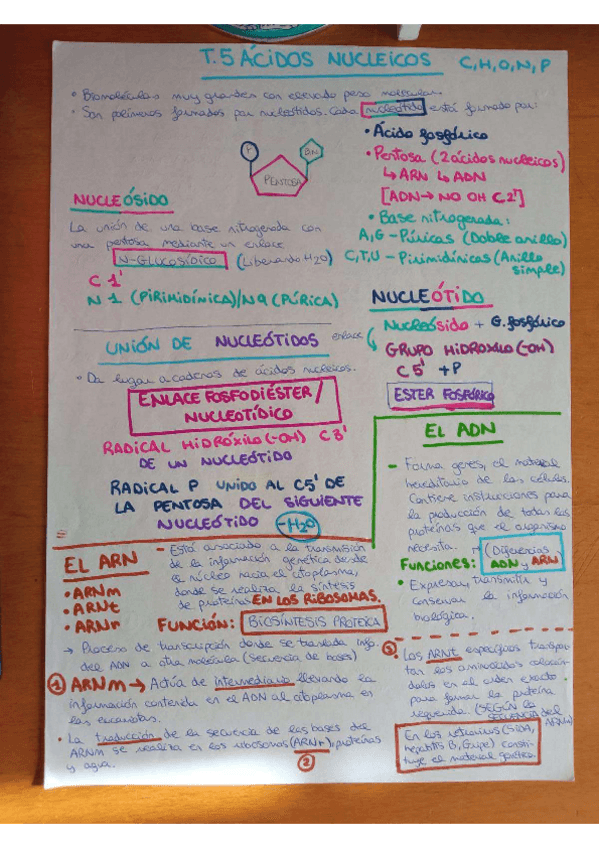 T.5 ÁCIDOS NUCLEICOS C,H,O,N,P
• Biomoléculas muy grandes con elevado peso molecular.
• Son polímeros formados por nucleótidos. Cada nucleótido está formado por:
• Ácido fosfórico
• Pentosa (2 ácidos nucleicos)
↳ ARN ↳ ADN
[ADN → NO OH C2']
• Base nitrogenada:
A,G - Púricas (Doble anillo)
C,T,U - Pirimidínicas (Anillo
simple)
P
BN
PENTOSA
NUCLEÓSIDO
La unión de una base nitrogenada con
una pentosa mediante un enlace
N-GLUCOSÍDICO (Liberando H2O)
C 1'
N 1 (PIRIMIDÍNICA)/N9 (PÚRICA)
NUCLEÓTIDO
Nucleósido + G. fosfórico
enlace
GRUPO HIDROXILO (-OH)
C 5' + P
ESTER FOSFÓRICO
UNIÓN DE NUCLEÓTIDOS
• Da lugar a cadenas de ácidos nucleicos.
ENLACE FOSFODIÉSTER /
NUCLEOTÍDICO
RADICAL HIDRÓXILO (-OH) C3'
DE UN NUCLEÓTIDO
RADICAL P UNIDO AL C5' DE
LA PENTOSA DEL SIGUIENTE
NUCLEÓTIDO -H2O
EL ADN
- Forma genes, el material
hereditario de las células.
Contiene instrucciones para
la producción de todas las
proteínas que el organismo
necesita.
(Diferencias
ADN y ARN)
Funciones:
• Expresar, transmitir y
conservar la información
biológica.
EL ARN
• ARNm
• ARNt
• ARNr
- Está asociado a la transmisión
de la información genética desde
el núcleo hacia el citoplasma,
donde se realiza la síntesis
de proteínas EN LOS RIBOSOMAS.
FUNCIÓN: BIOSÍNTESIS PROTEICA
→ Proceso de transcripción donde se traslada info.
del ADN a otra molécula (Secuencia de bases)
① ARNm → Actúa de intermediario llevando la
información contenida en el ADN al citoplasma en
las eucariotas.
• La traducción de la secuencia de las bases del
ARNm se realiza en los ribosomas (ARNr), proteínas
y agua.
②
③
• Los ARNt específicos transpor
tan los aminoácidos colocán
dolos en el orden exacto
para formar la proteína
requerida. (SEGÚN LA
SECUENCIA DEL
ARNm)
En los retrovirus (SIDA,
hepatitis B, Gripe) consti
tuye el material genético.